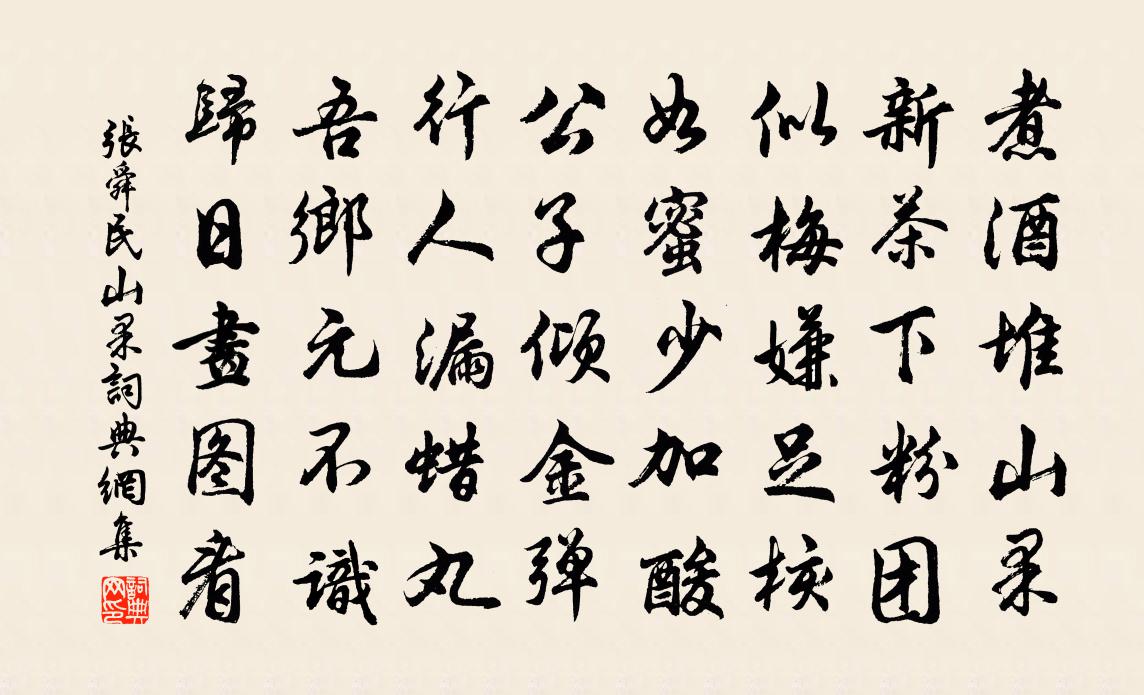 煮酒堆山果
新茶下粉团
似梅嫌足核
如蜜少加酸
公子倾金弹
行人漏蜡丸
吾鄉元不識
歸日畫图看
張舜民山果詞典網集
詞典網印